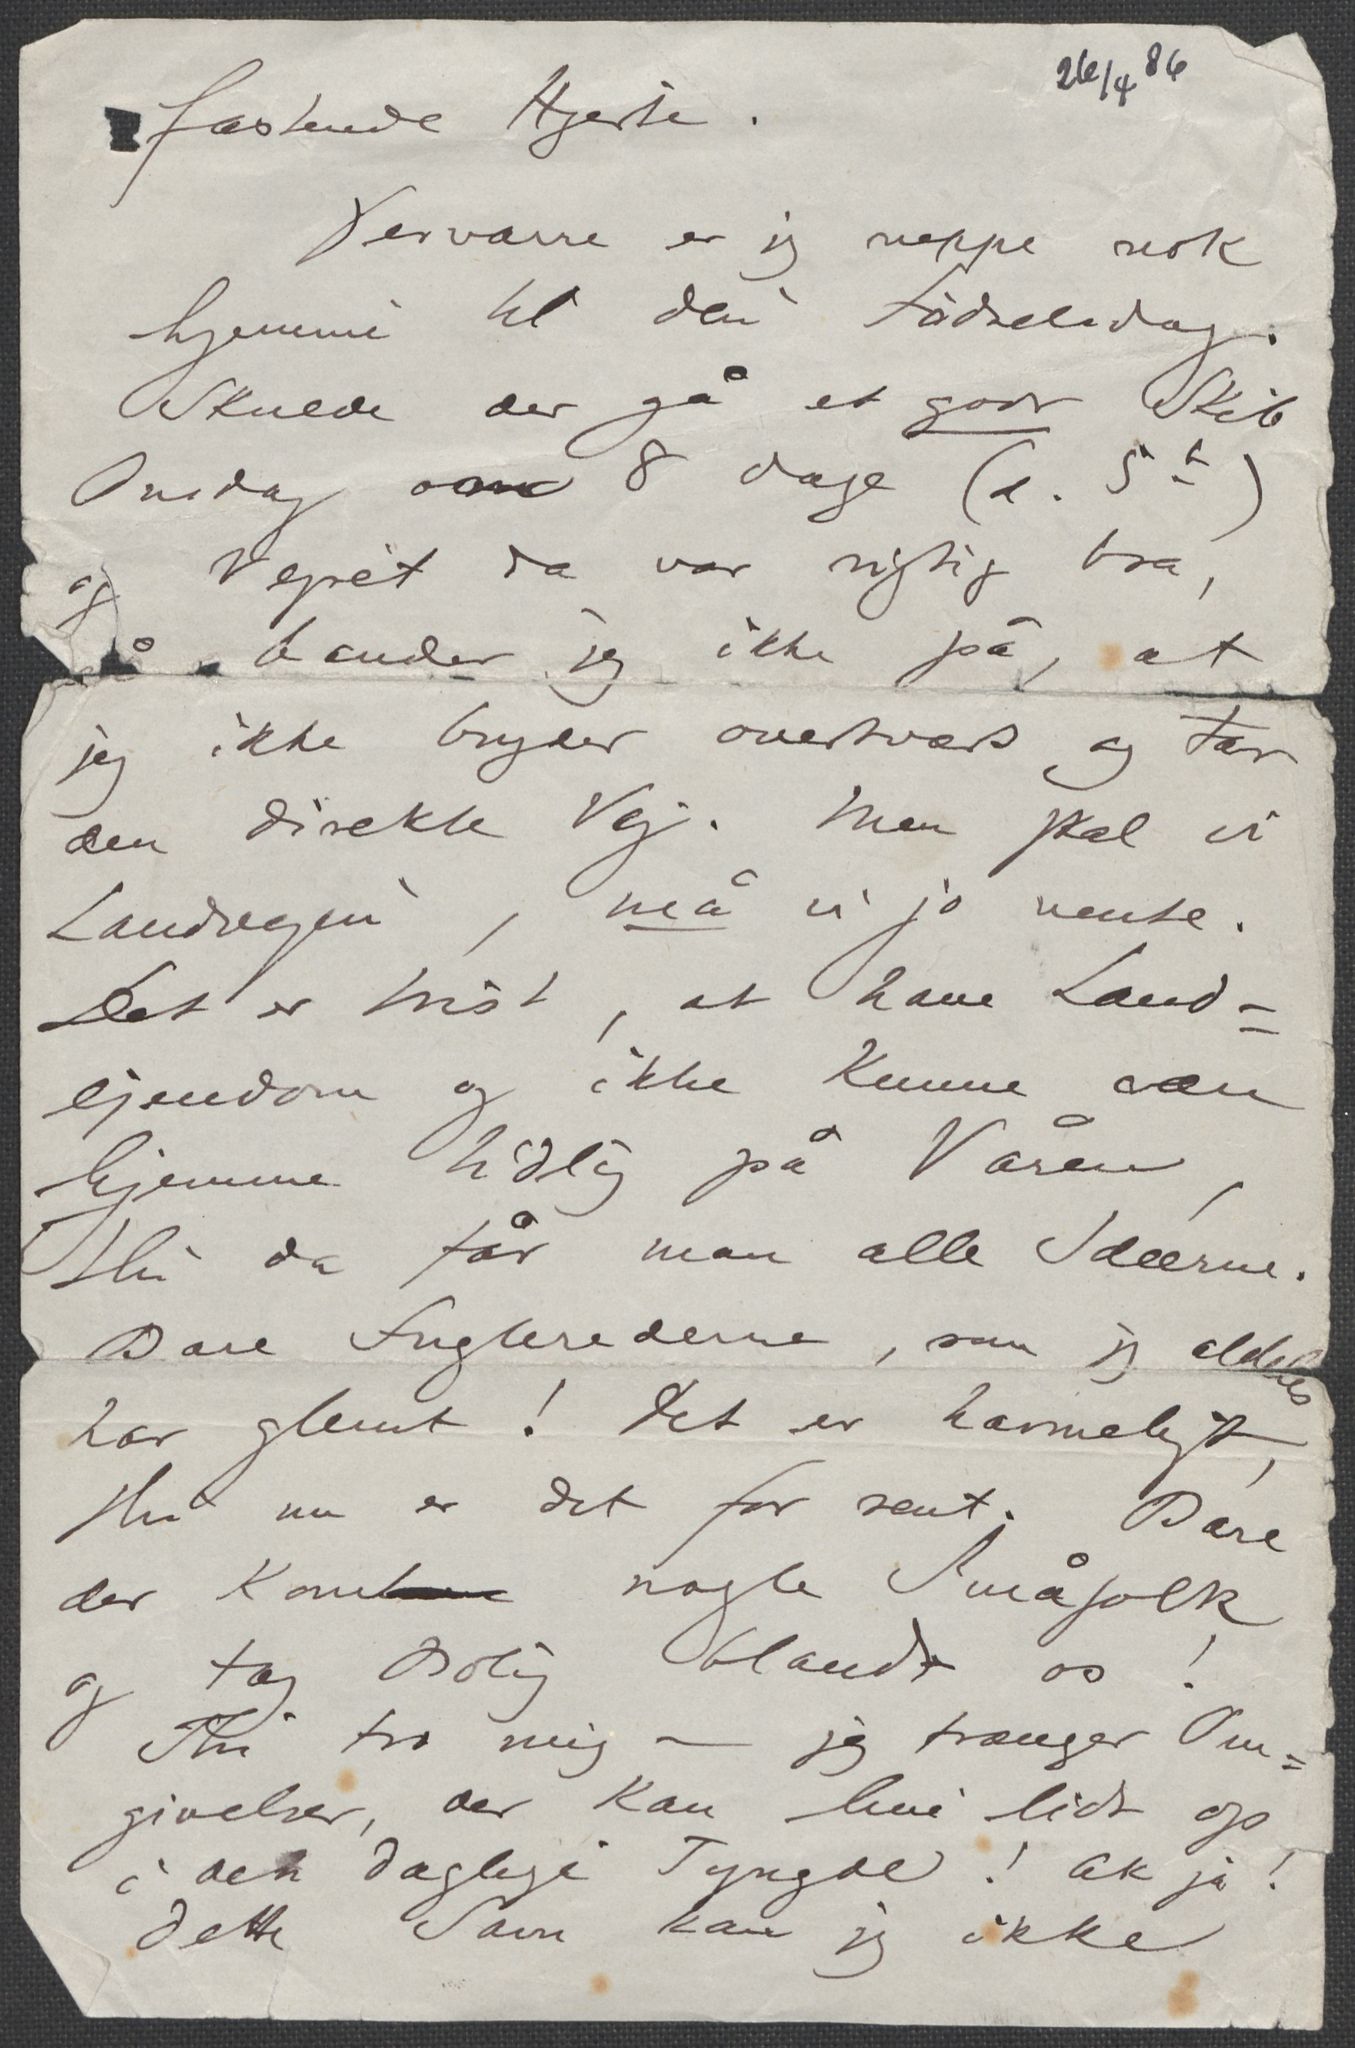 26/4 86
fæstende Hjerte.
Derværre er jeg neppe nok
hjemme til din Fødselsdag.
Skulde der gå et godt Skib
Onsdag om 8 dage (d. 5t)
og Vejret da var rigtig bra,
så bander jeg ikke på, at
jeg ikke bryder overtværs og tar
den direkte Vej. Men skal vi
Landvejen, må vi jo vente.
Det er trist, at have Land=
ejendom og ikke kunne være
hjemme tidlig på Våren,
thi da får man alle Ideerne.
Bare Fuglerederne, som jeg aldeles
har glemt! Det er harmeligt,
thi nu er det for sent. Bare
der kom nogle Småfolk
og tog Bolig blandt os!
Thi tro mig – jeg trænger Om=
givelser, der kan live lidt op
i den daglige Tyngde! Ak ja!
Dette Savn kan jeg ikke